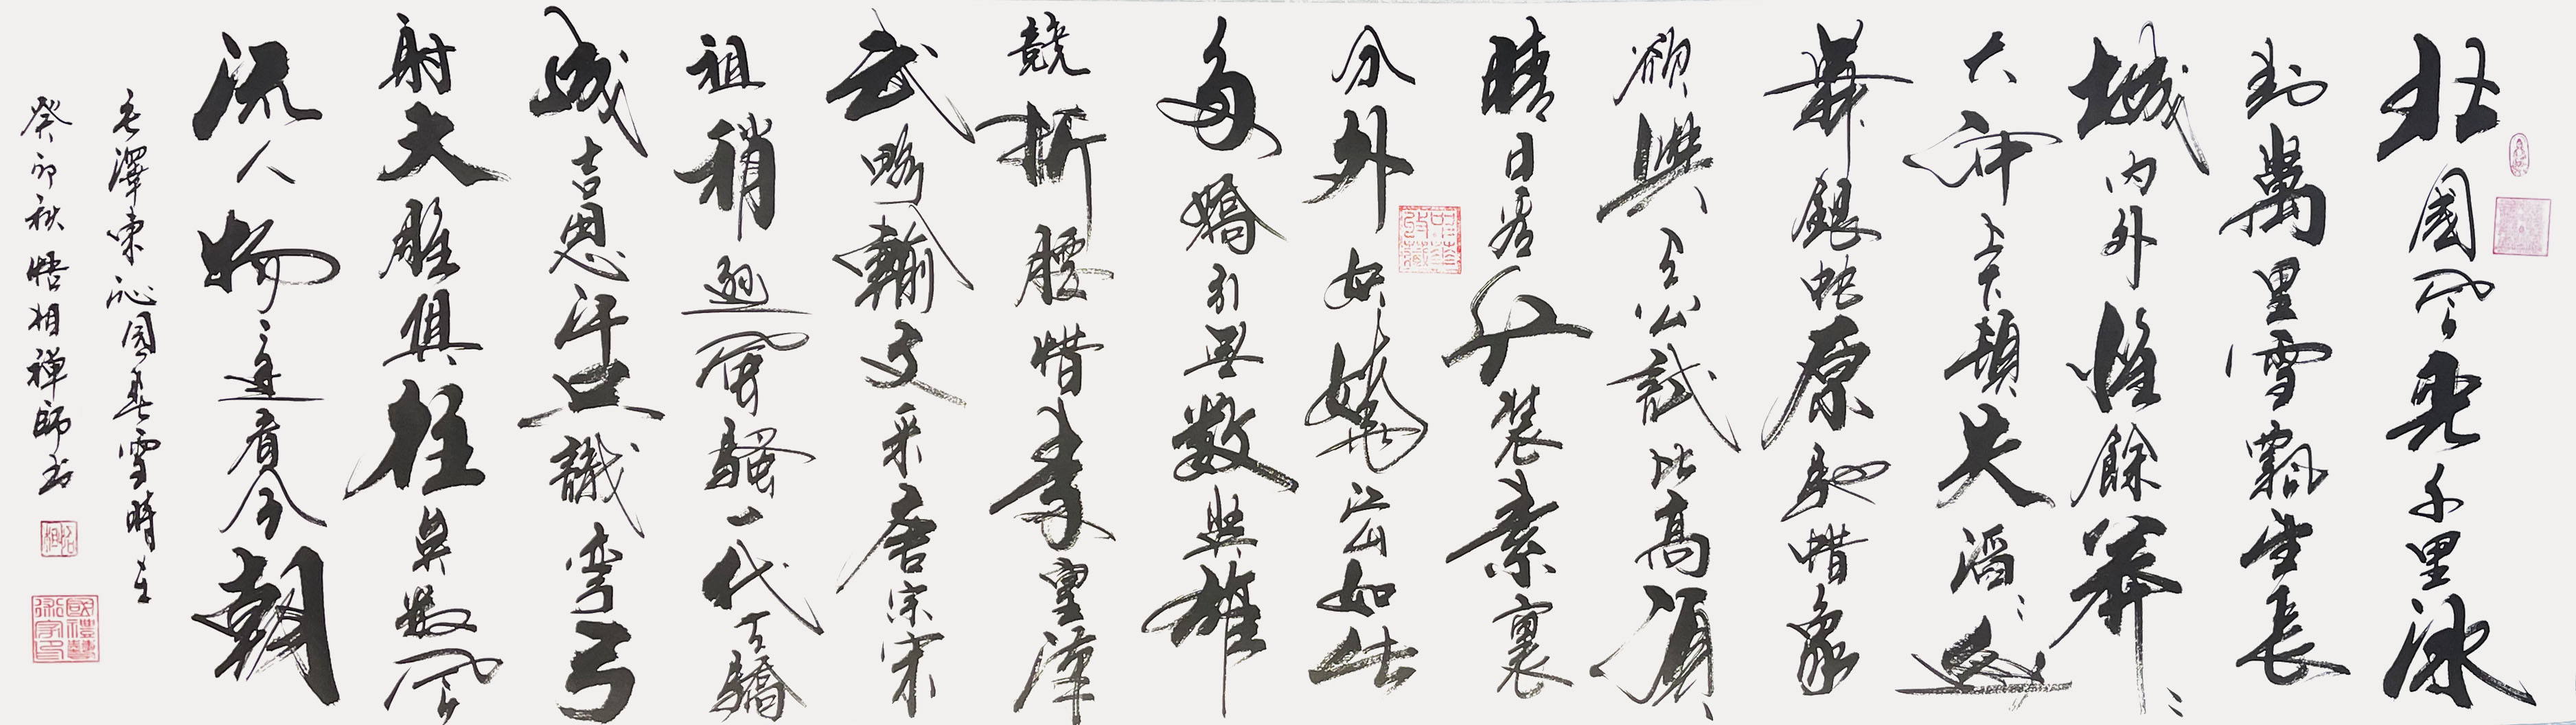 北國風光千里冰
封萬里雪飄望長
城内外惟餘莽〻
大河上下頓失滔〻山
舞銀蛇原馳蜡象
欲與天公試比高須
晴日看紅裝素裹
分外妖嬈江山如此
多嬌引無數英雄
競折腰惜秦皇漢
武略輸文采唐宗宋
祖稍遜風騷一代天驕
成吉思汗只識彎弓
射大雕俱往矣數風
流人物還看今朝
毛澤東沁園春雪時在
癸卯秋悟相禪師書
國禮藝術家印